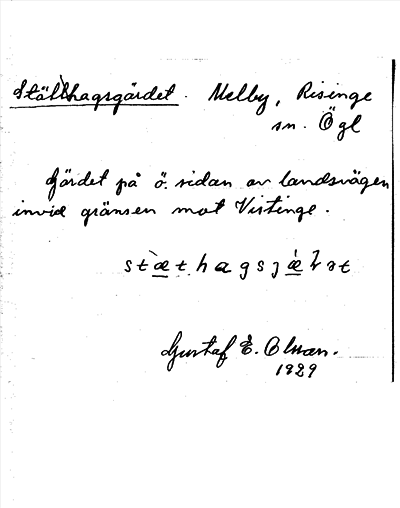 Ställhagsgärdet. Melby, Risinge
sn. Ögl
Gärdet på ö. sidan av landsvägen
invid gränsen mot Vistinge.
stæthagsjæɽət
Gustaf E. Olsson.
1929